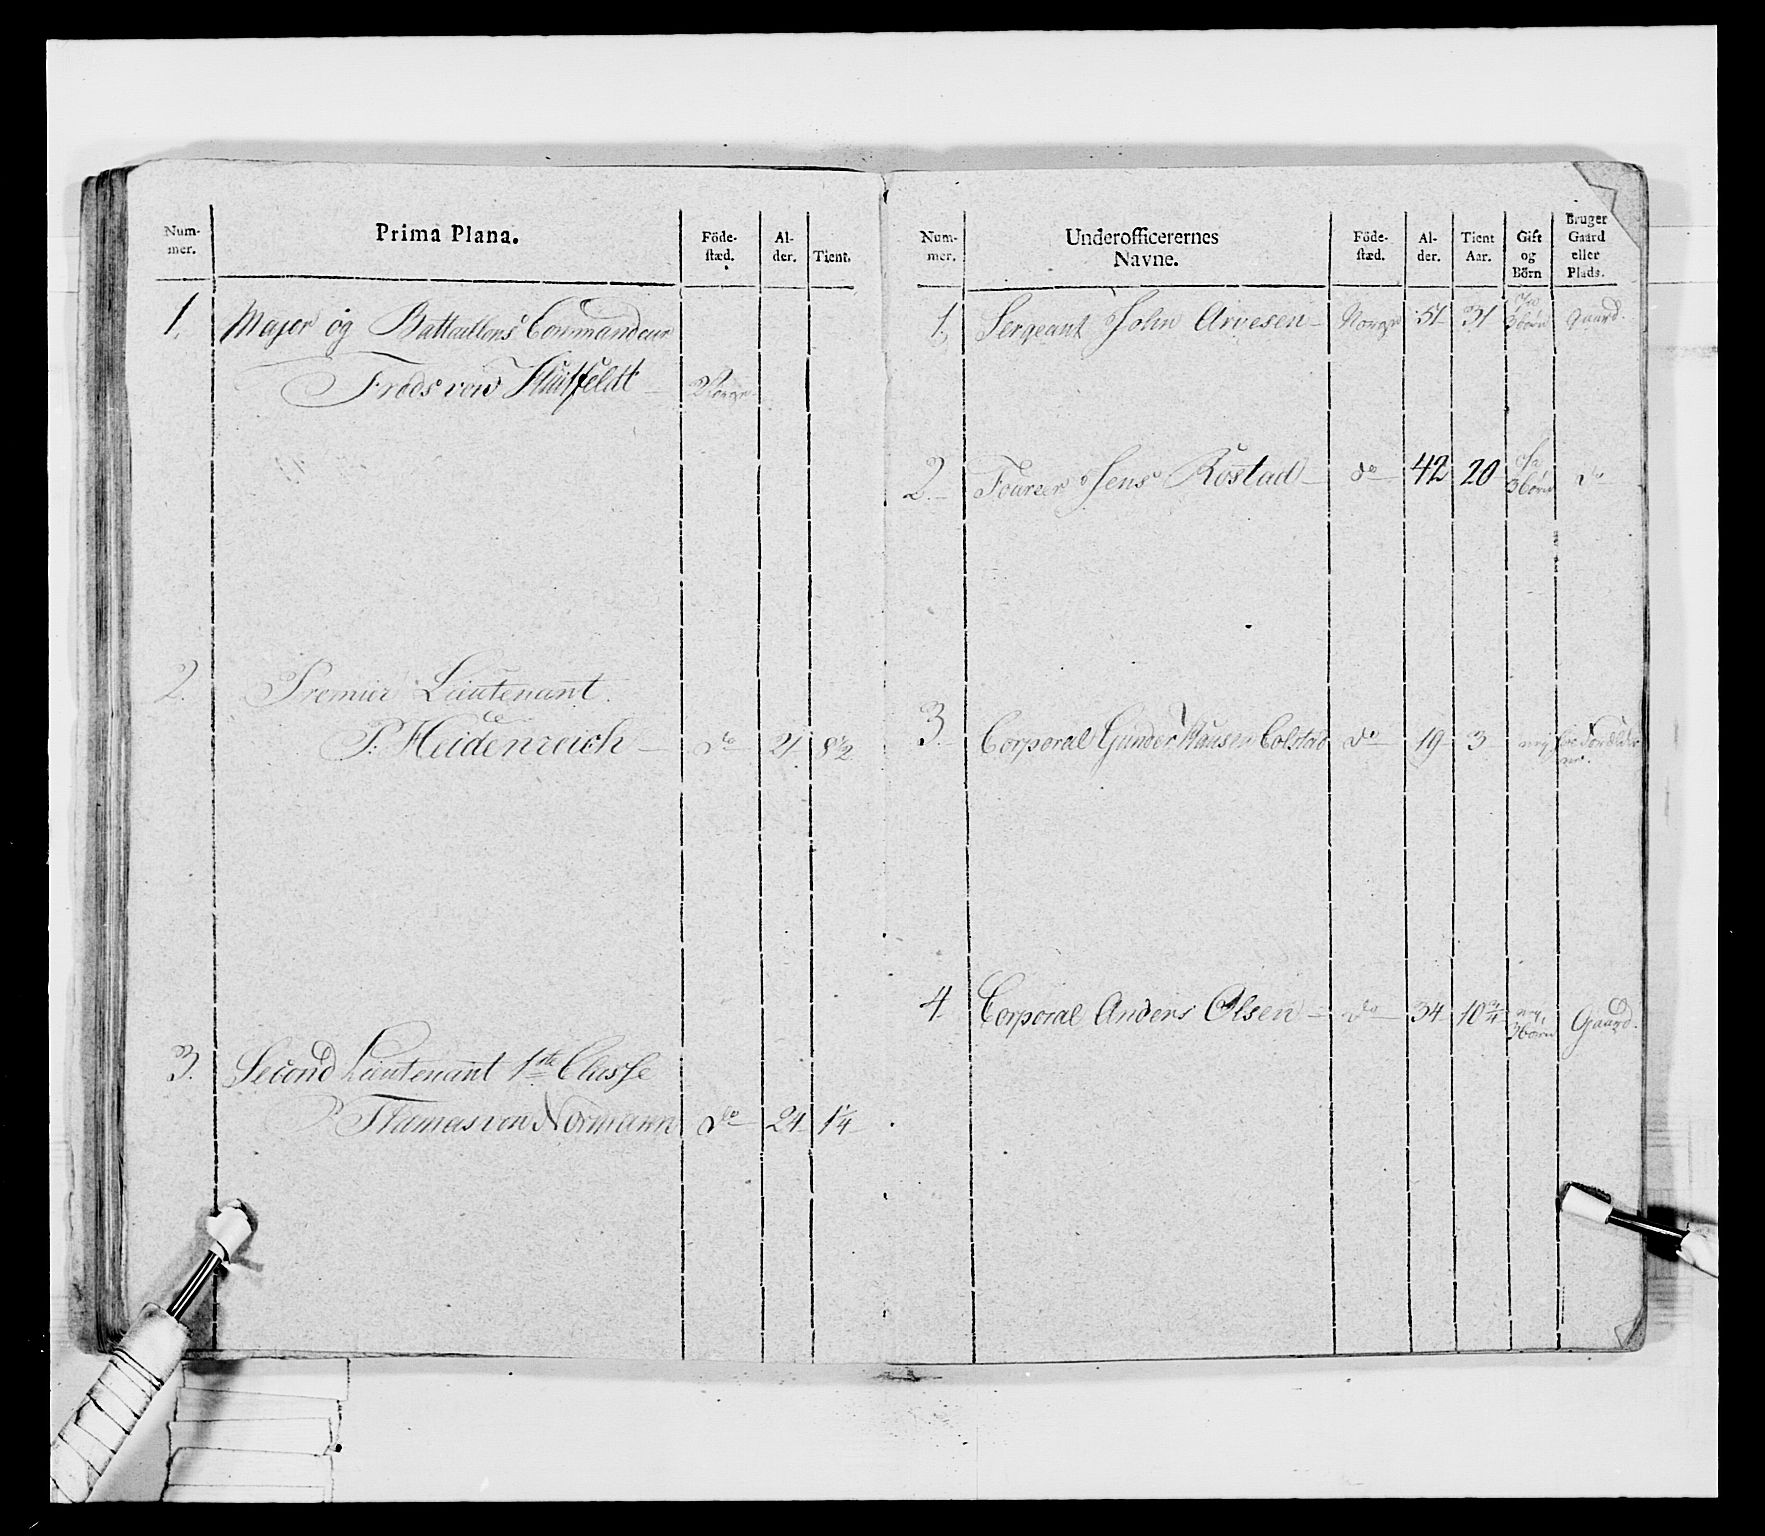 Num-
mer.
Prima Plana.
Föde-
stæd.
Al-
der.
Tient.
1. Major og Battaillons Commandeur
von Huitfeldt Norge
2. Premier Lieutenant
P: Heidenreich do 21 8½
3. Second Lieutenant 1ste Classe
Thomas von Normann do 24 1¼
Num-
mer.
Underofficerernes
Navne.
Föde-
stæd.
Al-
der.
Tient
Aar.
Gift
og
Börn
Bruger
Gaard
eller
Plads.
1. Sergeant John Arvesen Norge 51 31 3 börn Gaard.
2. Foureer Jens Rostad do 42 20 3 börn do
3. Corporal Gunder Hansen Colstad do 19 3 ney
4. Corporal Anders Olsen do 34 10¾ 3 börn Gaard.